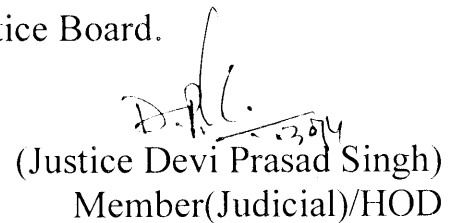 tice Board.
(Justice Devi Prasad Singh)
Member(Judicial)/HOD